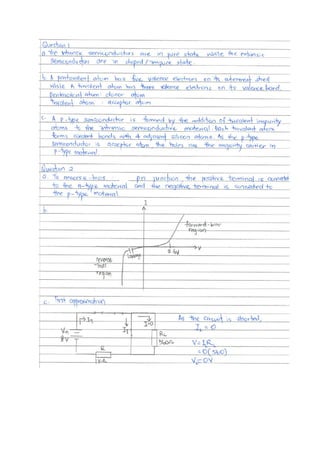 Question 1
a. The intrinsic semiconductors are in pure state while the extrinsic
semiconductors are in doped / impure state.
b. A pentavalent atom has five valence electrons on its outermost shell
while A trivalent atom has three valence electrons on its valence band.
pentavalent atom : donor atom
Trivalent atom : acceptor atom
c. A p-type semiconductor is formed by the addition of trivalent impurity
atoms to the intrinsic semiconductive material. Each trivalent atom
forms covalent bonds with 4 adjacent silicon atoms. As the p-type
semiconductor is acceptor atom, the holes are the majority carrier in
p-type material.
Question 2
a. To reverse bias pn junction, the positive terminal is connect
to the n-type material and the negative terminal is connected to
the p-type material.
b.
I
forward-bias
region
V
0.6V
reverse
bias
region
c. First approximation
As the circuit is shorted,
I = 0
V = IRL
= 0 (560)
VL = 0V
I=0
I1
Vin
8V
RL
560Ω
R
1kΩ